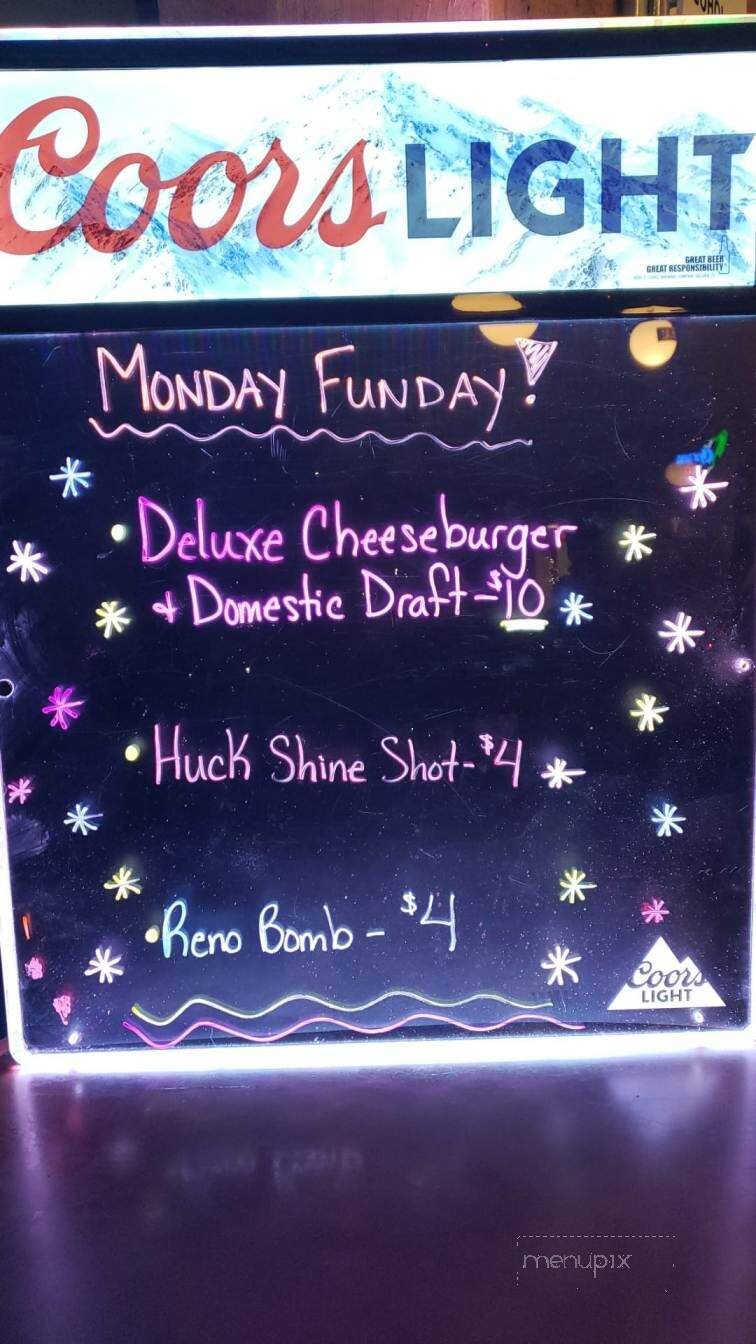 Coors LIGHT
GREAT BEER
GREAT RESPONSIBILITY
MONDAY FUNDAY!
• Deluxe Cheeseburger
& Domestic Draft - $10
• Huck Shine Shot - $4
• Reno Bomb - $4
Coors
LIGHT
menupix